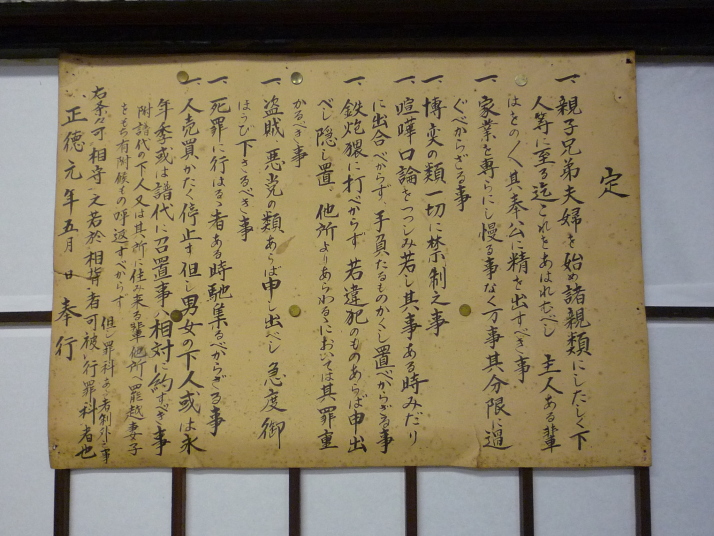 定
一、親子兄弟夫婦を始め諸親類にしたしく下
人等に至る迄これをあはれむべし 主人ある輩
はをの〳〵其奉公に精を出すべき事
一、家業を専らにし慢る事なく万事其分限に過
ぐべからざる事
一、博奕の類一切に禁制之事
一、喧嘩口論をつつしみ若し其事ある時みだり
に出合べからず 手負たるものかくし置べからざる事
一、鉄炮猥に打べからず 若違犯のものあらば申出
べし 隠し置、他所よりあらわるゝにおいては其罪重
かるべき事
一、盗賊、悪党の類あらば申し出べし 急度御
ほうび下さるべき事
一、死罪に行はるゝ者ある時馳集るべからざる事
一、人売買かたく停止す 但し男女の下人或は永
年季或は譜代に召置事ハ相対に約すべき事
附譜代の下人又は其所に住み来る輩他所へ罷越妻子
をもち有附候もの呼返すべからす
但し罪科ある者制外之事
右条々可相守之若於相背者可被行罪科者也
正徳元年五月 日 奉行